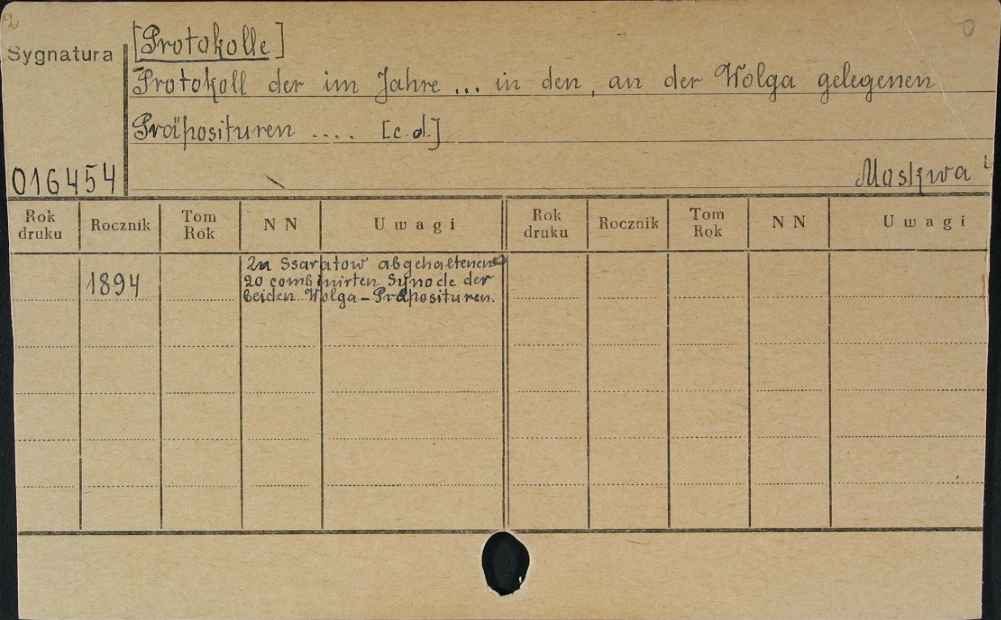 2
0
[Protokolle]
Sygnatura
Protokoll der im Jahre ... in den, an der Wolga gelegenen
Präposituren .... [c.d.]
016454
Moskwa
Rok druku Rocznik Tom Rok N N Uwagi Rok druku Rocznik Tom Rok N N Uwagi
1894
Zu Ssaratow abgehaltenen
20 combinirten Synode der
beiden Wolga-Präposituren.